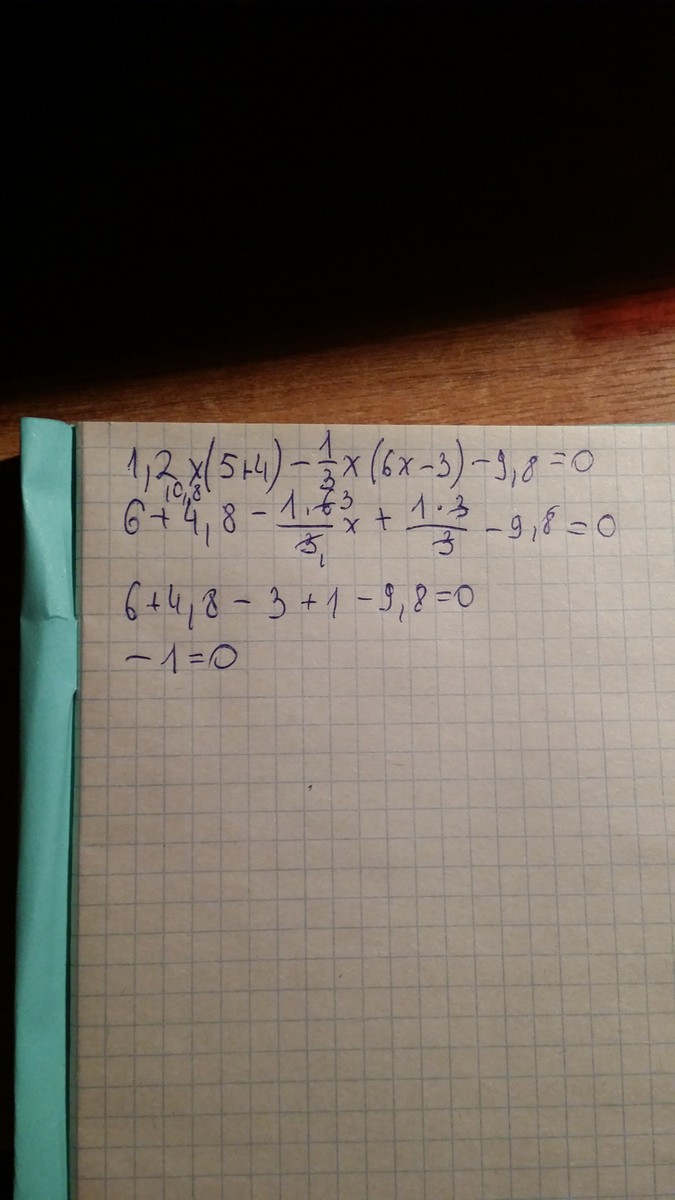 1,2x(5+4) - 1/3 x (6x-3) - 9,8 = 0
10,8
6 + 4,8 - 1·6 3/3 1 x + 1·3/3 - 9,8 = 0
6+4,8 - 3 + 1 - 9,8 = 0
- 1 = 0